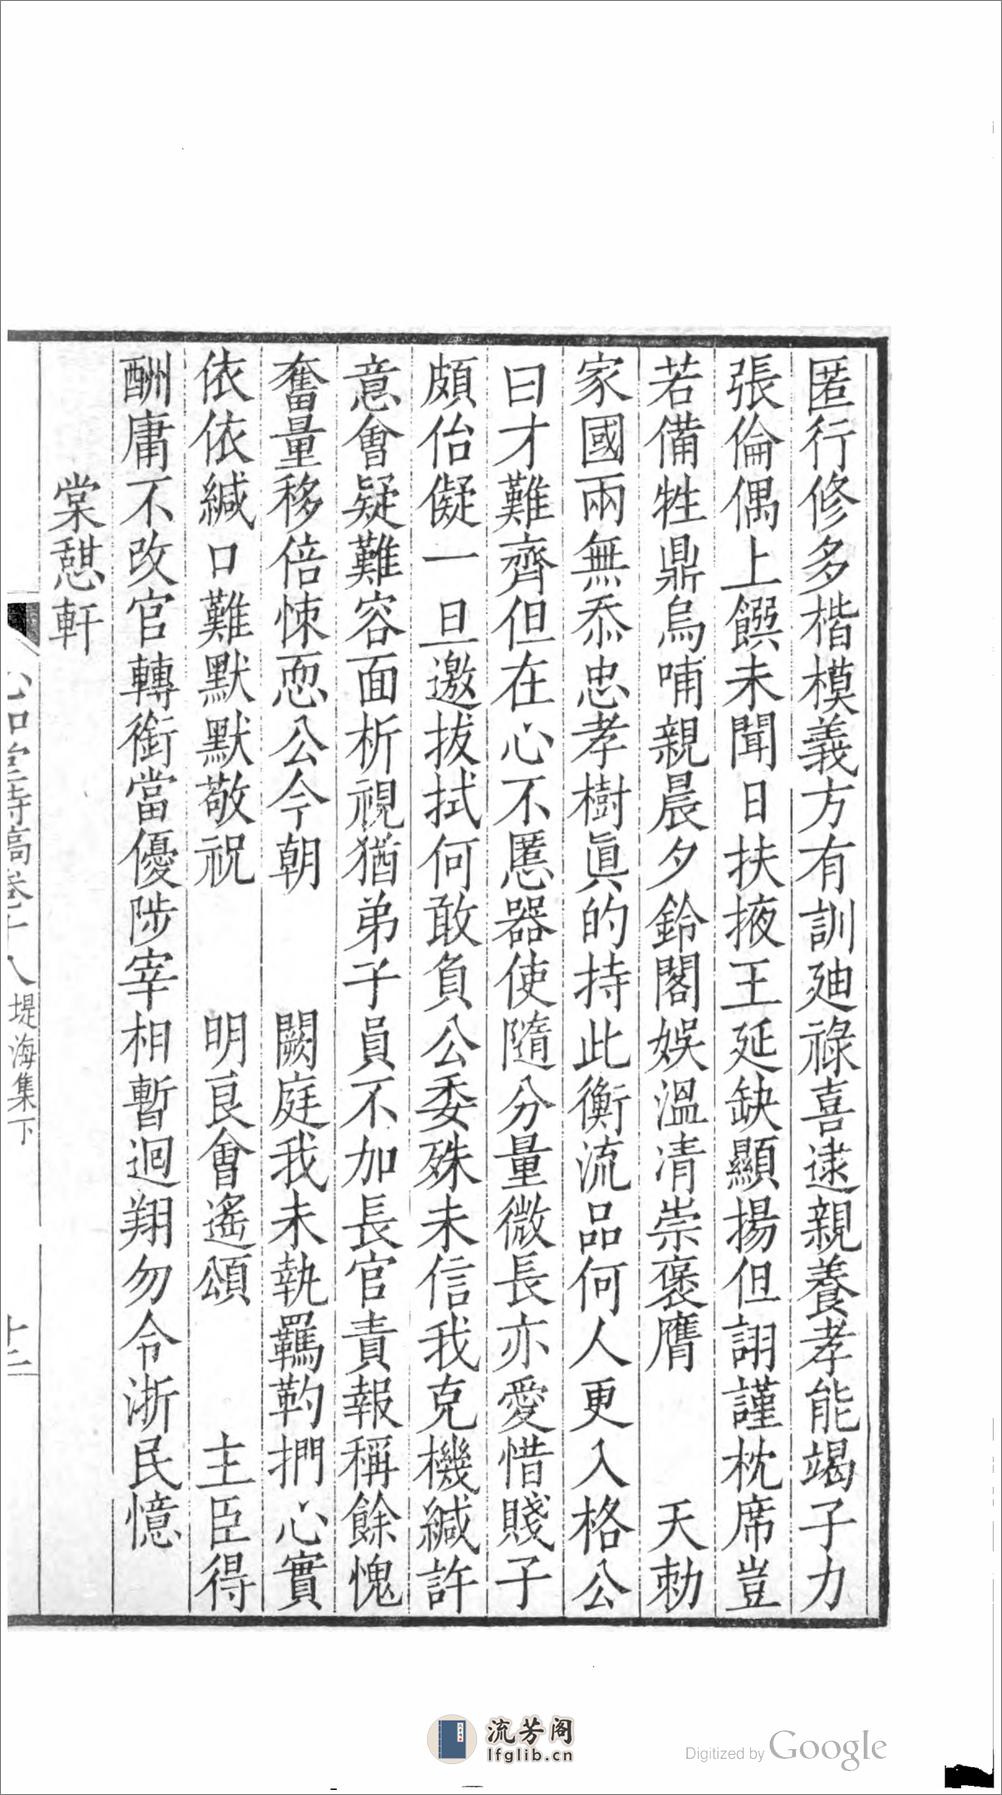 匿行修多楷模義方有訓廸祿喜逮親養孝能竭子力
張倫偶上饌未聞日扶掖王延缺顯揚但詡謹枕席豈
若備牲鼎烏哺親晨夕鈴閣娛溫凊崇褒膺　天勑
家國兩無忝忠孝樹眞的持此衡流品何人更入格公
曰才難齊但在心不慝器使隨分量微長亦愛惜賤子
頗佁儗一旦邀拔拭何敢負公委殊未信我克機緘許
意會疑難容面析視猶弟子員不加長官責報稱餘愧
奮量移倍悚恧公今朝　闕庭我未執羈靮捫心實
依依緘口難默默敬祝　明良會遙頌　主臣得
酬庸不改官轉銜當優陟宰相暫迴翔勿令浙民憶
棠憩軒
堂詩稿卷十八
堤海集下
十二
流芳阁
lfglib.cn
Digitized by Google